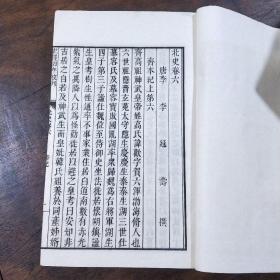 北史卷六
唐李　延　壽　撰
齊本紀上第六
齊高祖神武皇帝姓高氏諱歡字賀六渾勃海蓨人也
六世祖隱晉玄菟太守隱生慶慶生泰泰生湖三世仕
慕容氏及慕容寶敗國亂湖率衆歸魏爲右將軍湖生
四子第三子謐仕魏位至侍御史坐法徙居懷朔鎮謐
生皇考樹生性通率不事家業住居白道南數有赤光
紫氣之異隣人以爲怪勸徙居以避之皇考曰安知非
吉居之自若及神武生而皇妣韓氏殂養於同產姊壻